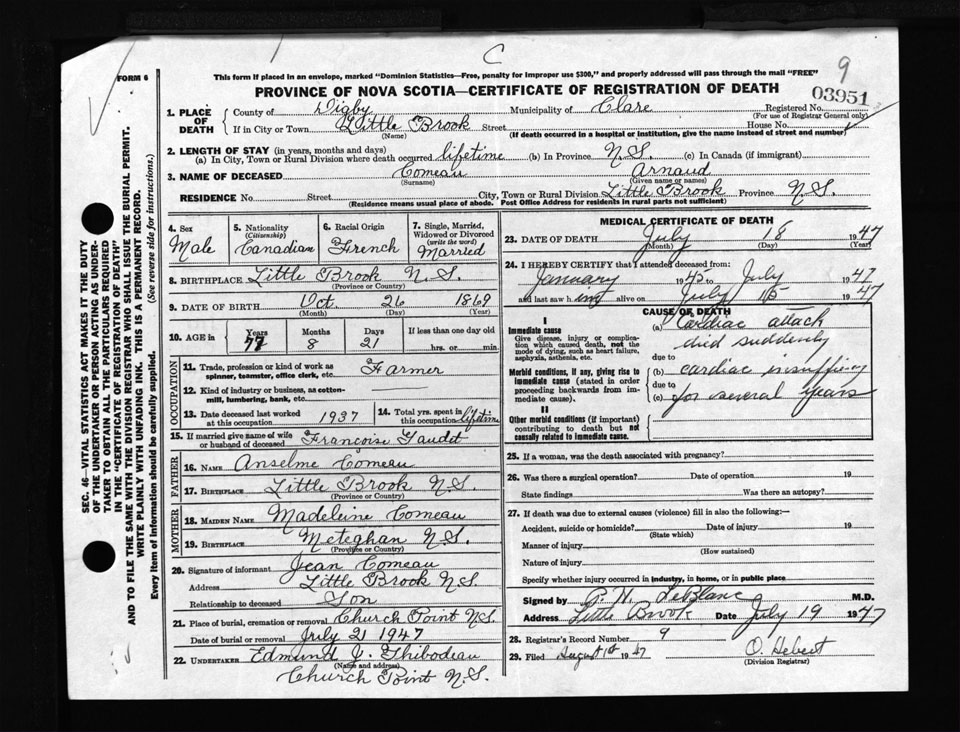 C
9
FORM 6
This form if placed in an envelope, marked "Dominion Statistics—Free, penalty for improper use $300," and properly addressed will pass through the mail "FREE"
PROVINCE OF NOVA SCOTIA—CERTIFICATE OF REGISTRATION OF DEATH
03951
1. PLACE OF DEATH County of Digby Municipality of Clare Registered No.
(For use of Registrar General only)
If in City or Town Little Brook Street House No.
(Name) (If death occurred in a hospital or institution, give the name instead of street and number)
2. LENGTH OF STAY (in years, months and days)
(a) In City, Town or Rural Division where death occurred lifetime (b) In Province N.S. (c) In Canada (if immigrant)
3. NAME OF DECEASED Comeau Arnaud
(Surname) (Given name or names)
RESIDENCE No. Street City, Town or Rural Division Little Brook Province N.S.
(Residence means usual place of abode. Post Office Address for residents in rural parts not sufficient)
SEC. 46—VITAL STATISTICS ACT MAKES IT THE DUTY
OF THE UNDERTAKER OR PERSON ACTING AS UNDER-
TAKER TO OBTAIN ALL THE PARTICULARS REQUIRED
IN THE "CERTIFICATE OF REGISTRATION OF DEATH"
AND TO FILE THE SAME WITH THE DIVISION REGISTRAR WHO SHALL ISSUE THE BURIAL PERMIT.
WRITE PLAINLY WITH UNFADING INK. THIS IS A PERMANENT RECORD.
Every item of information should be carefully supplied. (See reverse side for instructions.)
4. Sex 5. Nationality (Citizenship) 6. Racial Origin 7. Single, Married, Widowed or Divorced (write the word)
Male Canadian French Married
8. BIRTHPLACE Little Brook N.S.
(Province or Country)
9. DATE OF BIRTH Oct. 26 1869
(Month) (Day) (Year)
10. AGE in Years Months Days If less than one day old
77 8 21 hrs. or min.
OCCUPATION
11. Trade, profession or kind of work as spinner, teamster, office clerk, etc. Farmer
12. Kind of industry or business, as cotton-mill, lumbering, bank, etc.
13. Date deceased last worked at this occupation 1937 14. Total yrs. spent in this occupation lifetime
15. If married give name of wife or husband of deceased Françoise Gaudet
FATHER
16. NAME Anselme Comeau
17. BIRTHPLACE Little Brook N.S.
(Province or Country)
MOTHER
18. MAIDEN NAME Madeleine Comeau
19. BIRTHPLACE Meteghan N.S.
(Province or Country)
20. Signature of informant Jean Comeau
Address Little Brook N.S.
Relationship to deceased Son
21. Place of burial, cremation or removal Church Point N.S.
Date of burial or removal July 21 1947
22. UNDERTAKER Edmund J. Thibodeau
(Name and address)
Church Point N.S.
MEDICAL CERTIFICATE OF DEATH
23. DATE OF DEATH July 18 1947
(Month) (Day) (Year)
24. I HEREBY CERTIFY that I attended deceased from:
January 1945 to July 1947
and last saw him alive on July 15 1947
CAUSE OF DEATH
I
Immediate cause
Give disease, injury or complication which caused death, not the mode of dying, such as heart failure, asphyxia, asthenia, etc.
(a) Cardiac attack
died suddenly
due to
Morbid conditions, if any, giving rise to immediate cause (stated in order proceeding backwards from immediate cause).
(b) cardiac insufficiency
due to
(c) for several years
II
Other morbid conditions (if important) contributing to death but not causally related to immediate cause.
25. If a woman, was the death associated with pregnancy?
26. Was there a surgical operation? Date of operation 19
State findings Was there an autopsy?
27. If death was due to external causes (violence) fill in also the following:—
Accident, suicide or homicide? Date of injury 19
(State which)
Manner of injury
(How sustained)
Nature of injury
Specify whether injury occurred in industry, in home, or in public place
Signed by LeBlanc M.D.
Address Little Brook Date July 19 1947
28. Registrar's Record Number 9
29. Filed August 1st 1947 O. Hebert
(Division Registrar)